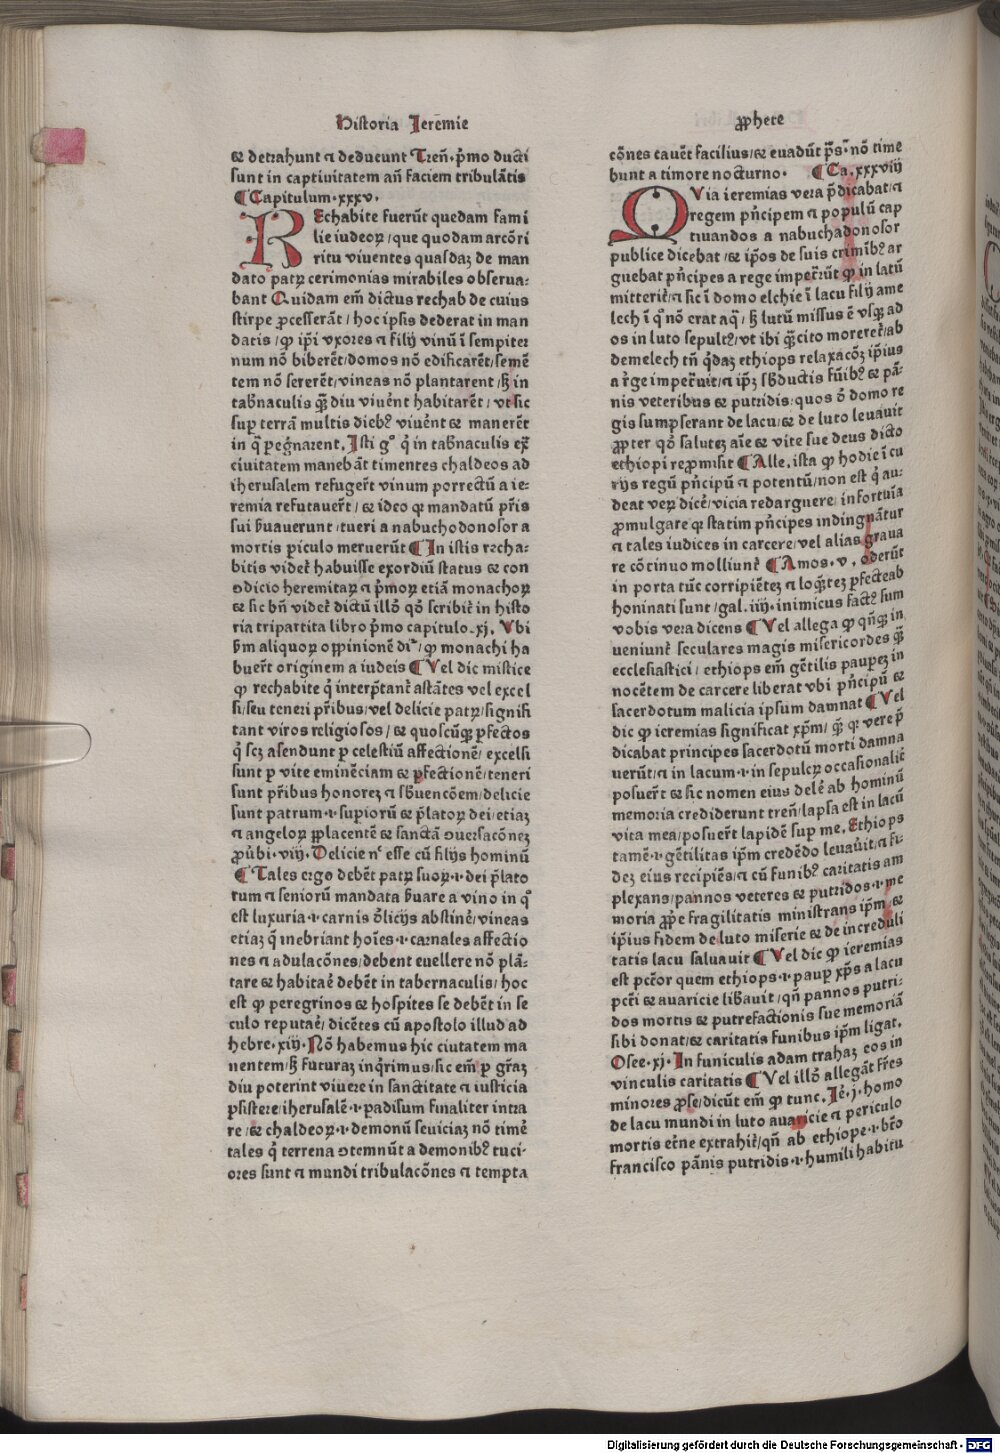 Historia Jerēmie
ꝓphete
⁊ detrahunt ⁊ deducunt Treñ. p̄mo ducti
sunt in captivitatem añ faciem tribulātis
¶ Capitulum .xxxv.
REchabite fuerūt quedam fami
lie iudeoꝝ / que quodam arcōri
ritu viuentes quasdaꝫ de man
dato patꝝ cerimonias mirabiles obserua⸗
bant Quidam em̄ dictus rechab de cuius
stirpe ꝓcesserāt / hoc ipsis dederat in man
datis / ꝙ ip̄i vxores ⁊ filij vinū ī sempiter
num nō biberēt / domos nō edificarēt / semē
tem nō sererēt / vineas nō plantarent / ꝫ in
tab̄naculis ꝙ̄ diu viuēnt habitarēt / vt sic
suꝑ terrā multis diebꝰ viuēnt ⁊ manerēt
in q̄ ꝑegͥnarent. Isti gͦ qͥ in tab̄naculis ex̄
ciuitatem manebāt timentes chaldeos ad
iherusalem refugerт̄ vinum porrectū a ie⸗
remia refutauerт̄ / ⁊ ideo qꝛ mandatū pr̄is
sui ẜuauerunt / tueri a nabuchodonosor a
mortis ꝑiculo meruerūt ¶ In istis recha⸗
bitis videт̄ habuisse exordiū status ⁊ con
ꝺdicio heremitaꝝ ⁊ p̄moꝝ etiā monachoꝝ
⁊ sic bn̄ videт̄ dictū illō qō scribiт̄ in histo
ria tripartita libro p̄mo capitulo .xj. Vbi
ẜm aliquoꝝ opinionē diꝰ / ꝙ monachi ha
buerт̄ originem a iudeis ¶ Vel dic mistice
ꝙ rechabite qͥ interp̄tanт̄ astātes vel excel
si / seu teneri pr̄ibus / vel delicie patꝝ / signifi
tant viros religiosos / ⁊ quoscūqꝫ ꝑfectos
qͥ scꝫ asendunt ꝑ celestiū affectionē / excelsi
sunt ꝑ vite eminēciam ⁊ ꝑfectionē / teneri
sunt pr̄ibus honoreꝫ ⁊ sb̄uencōem / delicie
sunt patrum .i. supioꝝ ⁊ p̄latoꝝ dei / etiaꝫ
⁊ angeloꝝ ꝑplacentē ⁊ sanctā ꝯuersacōneꝫ
ꝓūbi .viij. Delicie nͤ esse cū filijs hominū
¶ Tales ergo debēt patꝝ suoꝝ .i. dei p̄lato
rum ⁊ senioꝝ mandata ẜuare a vino in qͦ
est luxuria .i. carnis ꝺlicijs abstinē / vineas
etiaꝫ q̄ inebriant hoīes .i. carnales affectio
nes ⁊ adulacōnes / debent euellere nō plā⸗
tare ⁊ habitaē debēt in tabernaculis / hoc
est ꝙ peregrinos ⁊ hospites se debēt in se
culo reputaē / dicētes cū apostolo illud ad
hebre .xiij. Nō habemus hic ciutatem ma
nentem / ꝫ futuraꝫ inqͥrimus / sic em̄ ꝑ gr̄aꝫ
diu poterint viuere in sanctitate ⁊ iusticia
ꝑsistere / iherusalē .i. padisum finaliter intra
re / ⁊ chaldeoꝝ .i. demonū seuiciaꝫ nō timē
tales qͥ terrena ꝯtemnūt a demonibꝰ tuci⸗
ores sunt ⁊ mundi tribulacōnes ⁊ tempta
cōnes cauēt facilius / ⁊ evadūt p̄s. nō time
bunt a timore nocturno. ¶ Ca. xxxviij
QVia ieremias vera p̄dicabat / ⁊
regem p̄ncipem ⁊ populū cap
tiuandos a nabuchadonosor
publice dicebat / ⁊ ip̄os de suis crimībꝰ ar
guebat p̄ncipes a rege impeт̄rūt ꝙ in latū
mitteriт̄ / ⁊ sic ī domo elchie ī lacu filij ame
lech ī qͦ nō erat aq̄ / ꝫ lutū missus ē vsqꝫ ad
os in luto sepultꝰ / vt ibi qͣcito morereт̄ / ab
demelech tn̄ qͥdaꝫ ethiops relaxacōꝫ ip̄ius
a rͤge impeт̄uit / ⁊ ip̄ꝫ sb̄ductis fūibꝰ ⁊ pā⸗
nis veteribus ⁊ putridis / quos ō domo re
gis sumpserant de lacu / ⁊ de luto leuauit
ꝓpter qō saluteꝫ aīe ⁊ vite sue deus dicto
ethiopi repͦmisit ¶ Alle. ista ꝙ hodie ī cu
rijs regū p̄ncipū ⁊ potentū / non est qͥ au⸗
deat veꝝ dicē / vicia redarguere / infortuīa
ꝓmulgare qꝛ statim p̄ncipes indingnātur
⁊ tales iudices in carcere / vel alias graua
re cōtinuo moliunт̄ ¶ Amos .v. oderūt
in porta tūc corripiētеꝫ ⁊ loqͣteꝫ ꝑfecteab
hominati sunt / gal. iiij. inimicus factꝰ sum
vobis vera dicens ¶ Vel allega ꝙ qn̄qꝫ in
ueniunт̄ seculares magis misericordes qͣꝫ
ecclesiastici / ethiops em̄ gētilis pauꝑeꝫ in
nocētem de carcere liberat vbi p̄ncipū ⁊
sacerdotum malicia ipsum damnat ¶ Vel
dic ꝙ ieremias significat xp̄m / qͣꝫ qꝛ vere p̄
dicabat principes sacerdotū morti damna
uerūt / ⁊ in lacum .i. in sepulcꝝ occasionalit̄
posuerт̄ ⁊ sic nomen eius delē ab hominū
memoria crediderunt treñ / lapsa est in lacū
vita mea / posuerт̄ lapidē suꝑ me. Ethiops
tamē .i. gētilitas ip̄m credēdo leuaūit / ⁊ fi⸗
deꝫ eius recipiēs / ⁊ cū funibꝰ caritatis am
plexans / pannos veteres ⁊ putridos .i. me
moria ꝓpͤ fragilitatis ministrans ip̄m / ⁊
ip̄ius fidem de luto miserie ⁊ de increduli
tatis lacu saluauit ¶ Vel dic ꝙ ieremias
est pctōr quem ethiops .i. pauꝑ xp̄s a lacu
pctī ⁊ avaricie libauit / qn̄ pannos putri⸗
dos mortis ⁊ putrefactionis sue memoriā
sibi donat / ⁊ caritatis funibus ip̄m ligat.
Osee .xj. In funiculis adam trahaꝫ eos in
vinculis caritatis ¶ Vel illō allegāt fr̄es
minores ꝓ se / dicūt em̄ ꝙ tunc. Ie. j. homo
de lacu mundi in luto avaricie ⁊ periculo
mortis et̄ne extrahiт̄ / qn̄ ab ethiope .i. bt̄o
francisco pānis putridis .i. humili habitu
Digitalisierung gefördert durch die Deutsche Forschungsgemeinschaft - DFG